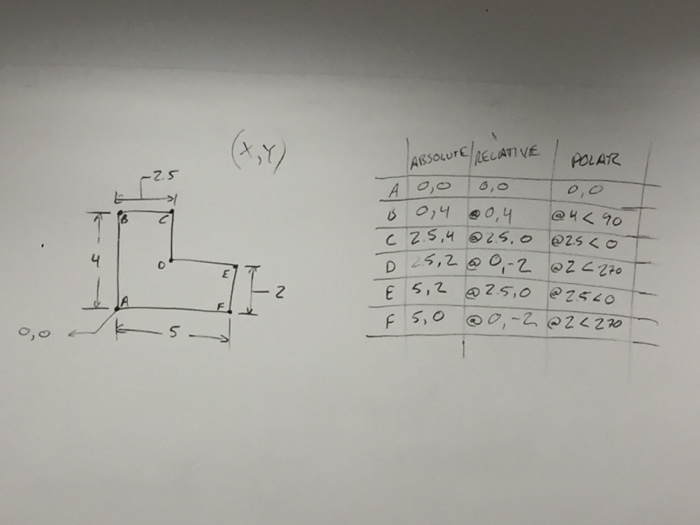 (X,Y)
2.5
B C
4
D
E
2
A
F
0,0
5
ABSOLUTE RELATIVE POLAR
A 0,0 0,0 0,0
B 0,4 @0,4 @4<90
C 2.5,4 @2.5,0 @2.5<0
D 2.5,2 @0,-2 @2<270
E 5,2 @2.5,0 @2.5<0
F 5,0 @0,-2 @2<270